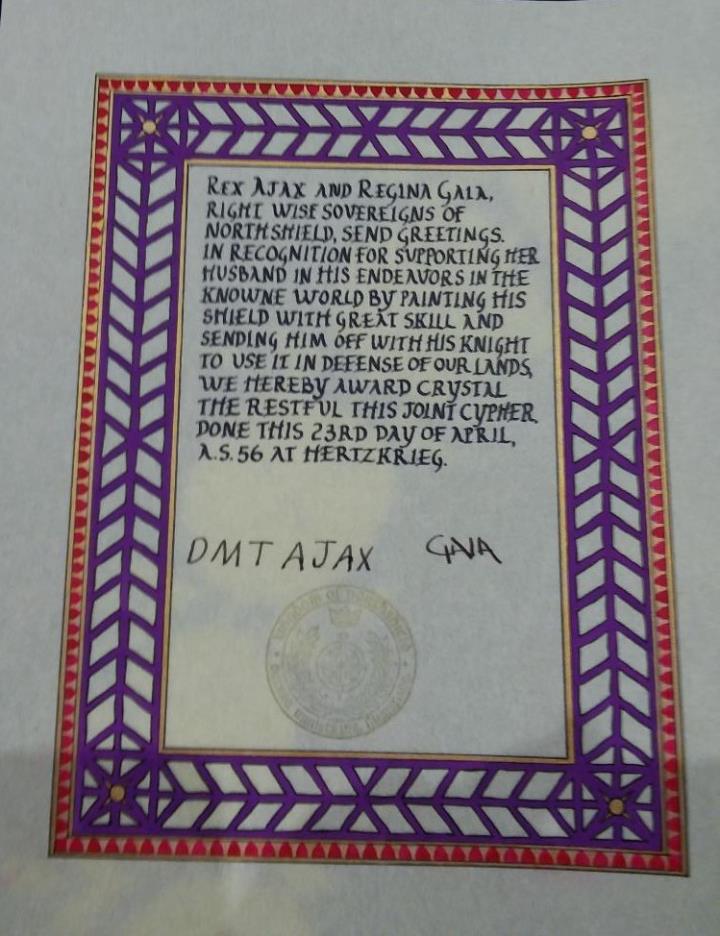 REX AJAX AND REGINA GAIA,
RIGHT WISE SOVEREIGNS OF
NORTHSHIELD, SEND GREETINGS.
IN RECOGNITION FOR SUPPORTING HER
HUSBAND IN HIS ENDEAVORS IN THE
KNOWNE WORLD BY PAINTING HIS
SHIELD WITH GREAT SKILL AND
SENDING HIM OFF WITH HIS KNIGHT
TO USE IT IN DEFENSE OF OUR LANDS,
WE HEREBY AWARD CRYSTAL
THE RESTFUL THIS JOINT CYPHER.
DONE THIS 23RD DAY OF APRIL,
A.S. 56 AT HERTZKRIEG.
DMT AJAX GAIA
Kingdom of Northshield